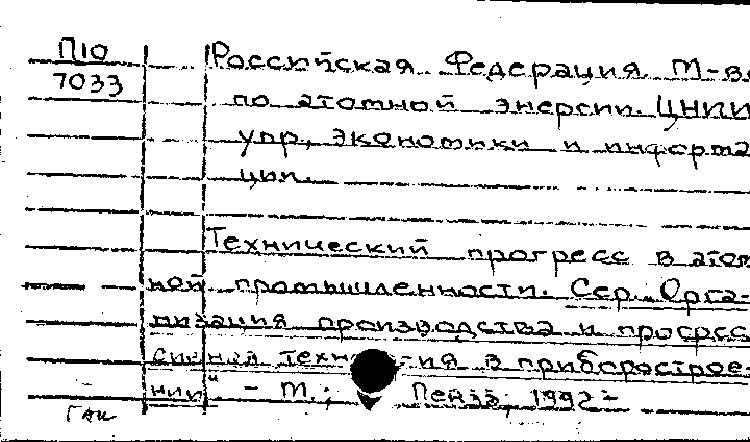 П10
7033
Российская Федерация. М-во
по атомной энергии. ЦНИИ
упр., экономики и информа
ции.
Технический прогресс в атом
ной промышленности. Сер. „Орга-
низация производства и прогрес
сивная технология в приборострое-
нии“. – М.; Пенза, 1992–